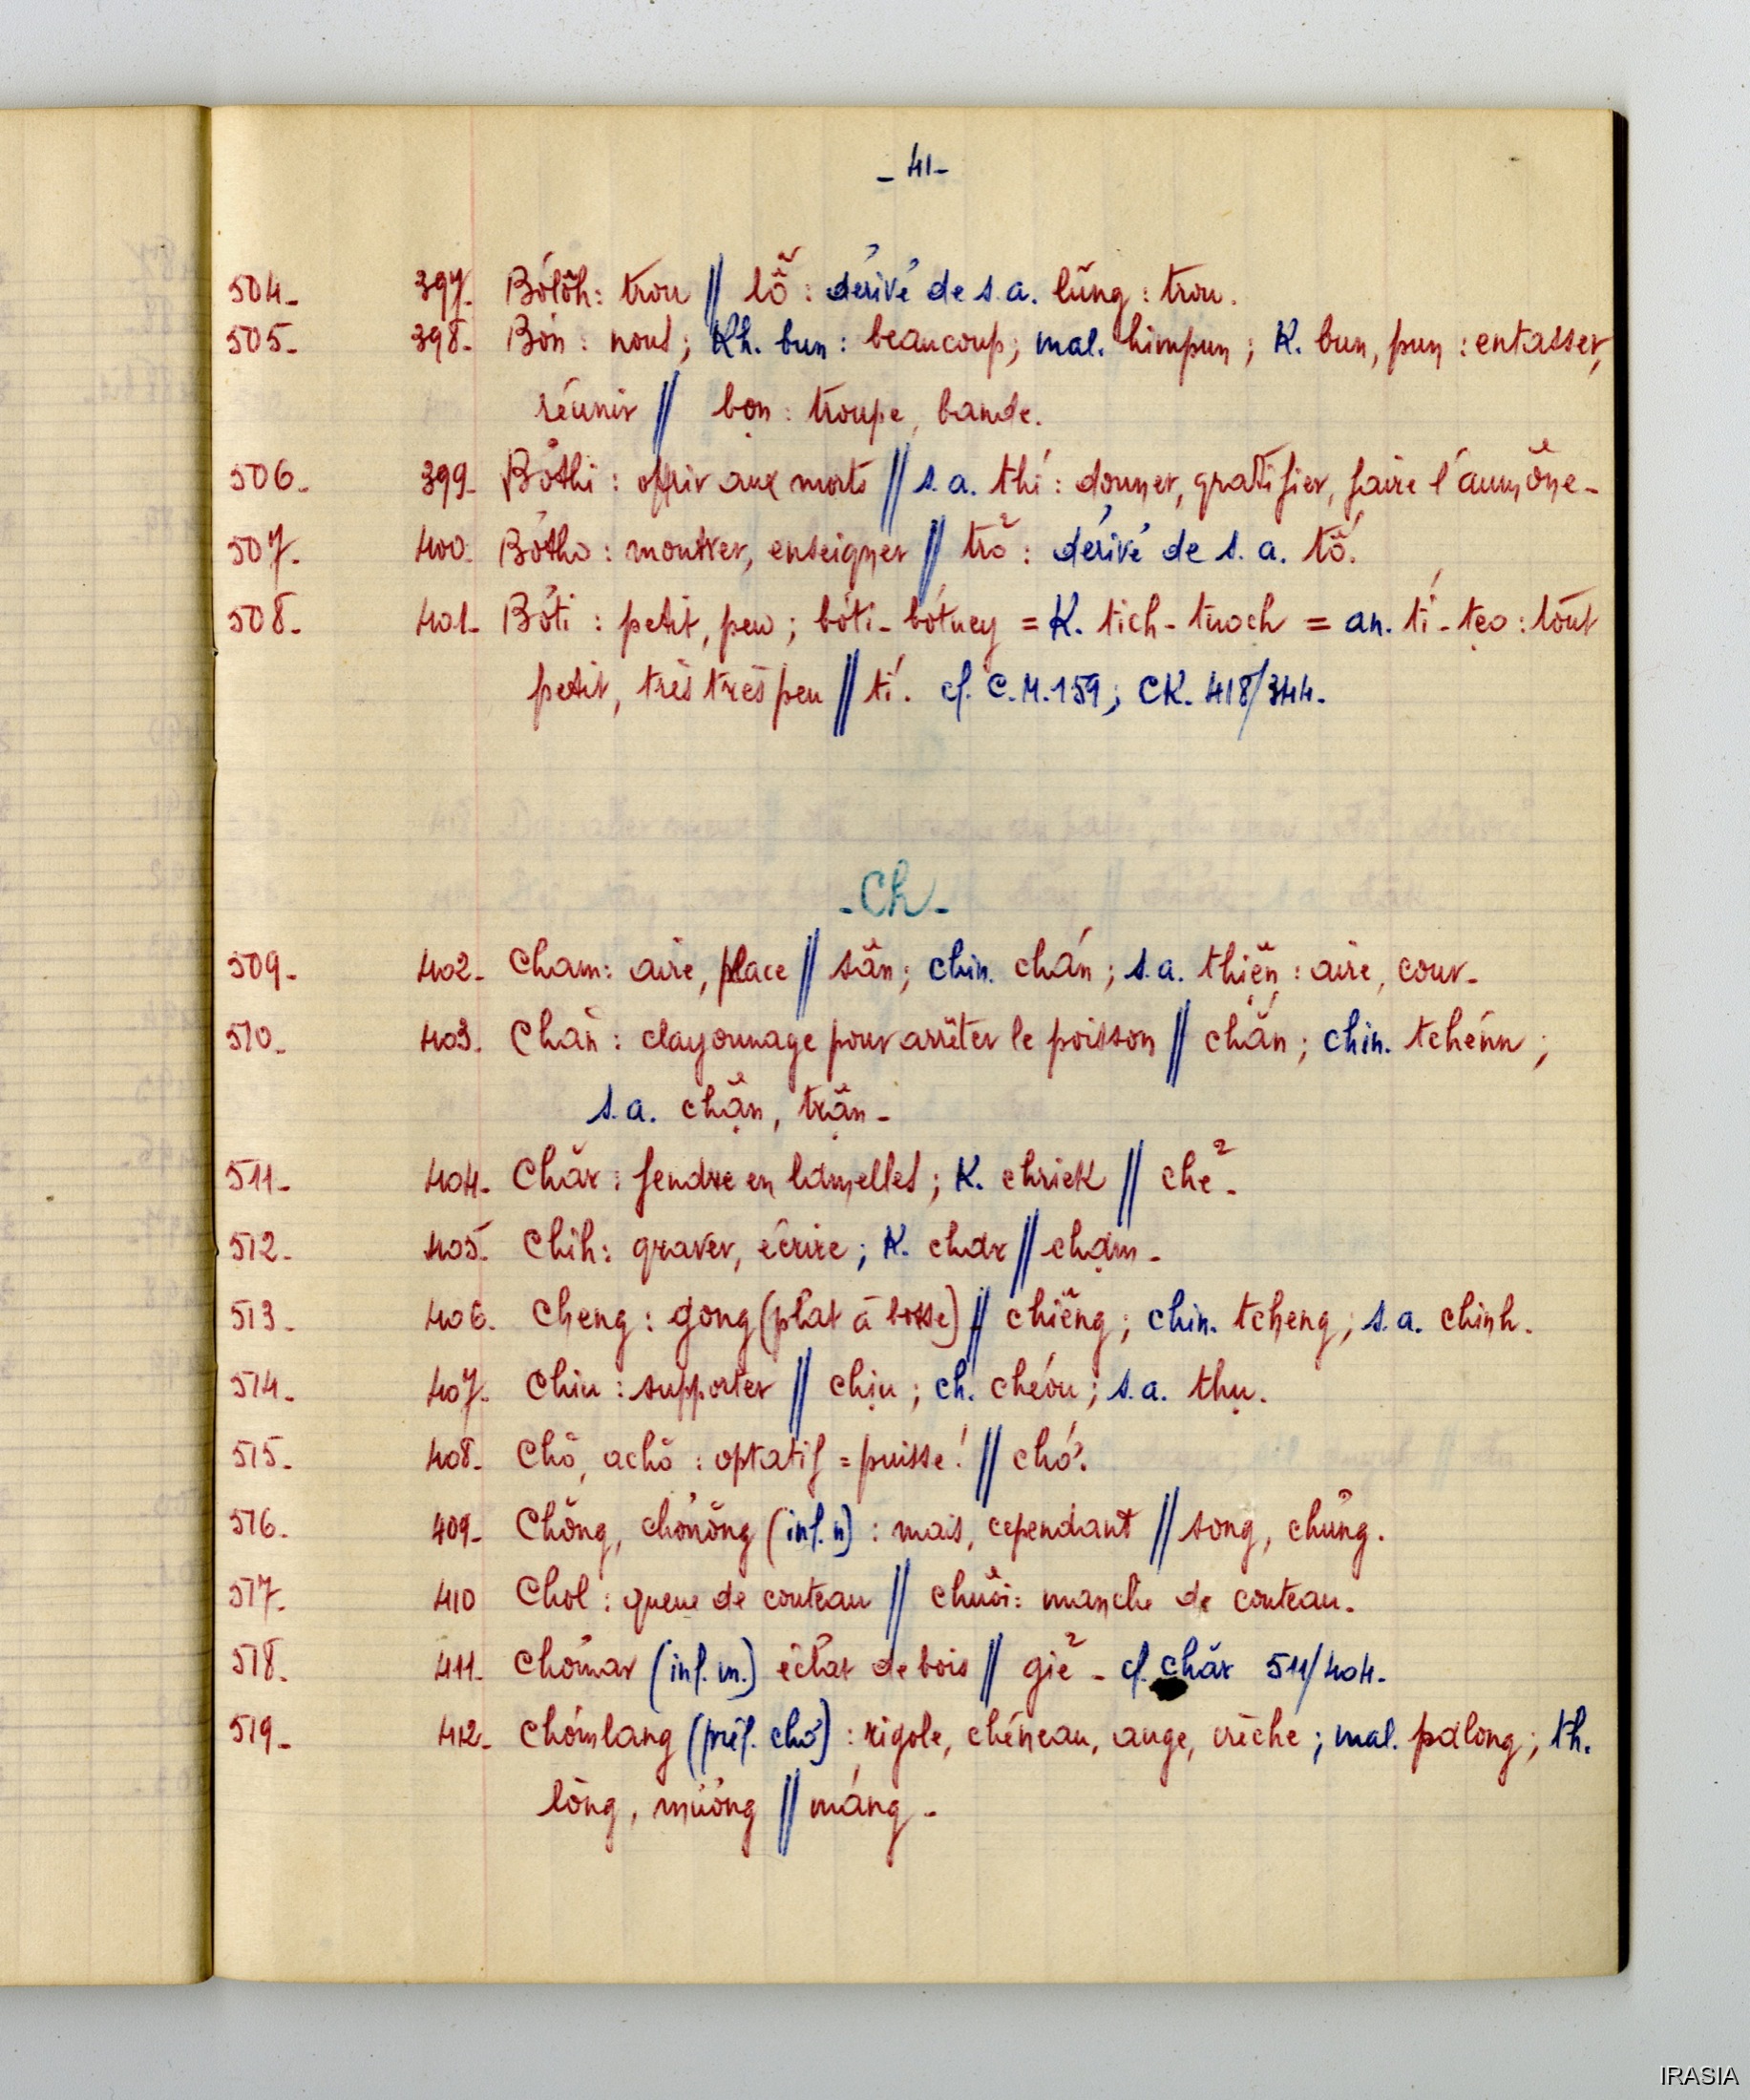 - 41 -
504. 397. Bơlôh : trou // lỗ : dérivé de s.a. lũng : trou.
505. 398. Bơn : nous ; Kh. bun : beaucoup ; mal. himpun ; K. bun, pun : entasser,
réunir // bọn : troupe, bande.
506. 399. Bơthi : offrir aux morts // s.a. thí : donner, gratifier, faire l'aumône -
507. 400. Bơtho : montrer, enseigner // trỏ : dérivé de s.a. tố.
508. 401. Bơti : petit, peu ; bơti-bơtuey = K. tich-tuoch = an. tí-tẹo : tout
petit, très très peu // tí. cf. C.M. 159 ; CK. 418/344.
- Ch -
509. 402. Cham : aire, place // sân ; chin. chán ; s.a. thiên : aire, cour -
510. 403. Chăn : clayonnage pour arrêter le poisson // chắn ; chin. tchénn ;
s.a. chận, trận -
511. 404. Chăr : fendre en lamelles ; K. chriek // chẻ -
512. 405. Chih : graver, écrire ; K. char // chạm -
513. 406. Cheng : gong (plat à bosse) // chiêng ; chin. tcheng ; s.a. chinh.
514. 407. Chiu : supporter // chịu ; ch. chéou ; s.a. thụ.
515. 408. Chŏ, achŏ : optatif = puisse ! // chớ.
516. 409. Chŏng, chơnŏng (inf. n) : mais, cependant // song, chưng.
517. 410 Chol : queue de couteau // chuôi : manche de couteau.
518. 411. Chơmar (inf. m.) éclat de bois // giẻ - cf. chăr 511/404.
519. 412. Chơmlang (préf. chơ) : rigole, chéneau, auge, crèche ; mal. palong ; th.
lòng, mương // máng -
IRASIA